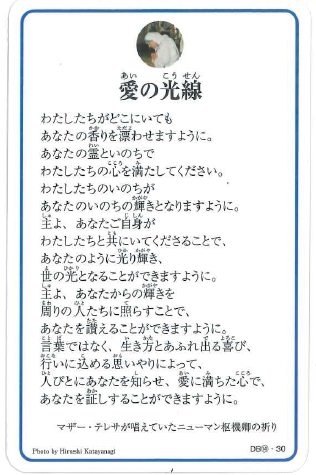 愛の光線
わたしたちがどこにいても
あなたの香りを漂わせますように。
あなたの霊といのちで
わたしたちの心を満たしてください。
わたしたちのいのちが
あなたのいのちの輝きとなりますように。
主よ、あなたご自身が
わたしたちと共にいてくださることで、
あなたのように光り輝き、
世の光となることができますように。
主よ、あなたからの輝きを
周りの人たちに照らすことで、
あなたを讃えることができますように。
言葉ではなく、生き方とあふれ出る喜び、
行いに込める思いやりによって、
人びとにあなたを知らせ、愛に満ちた心で、
あなたを証しすることができますように。
マザー・テレサが唱えていたニューマン枢機卿の祈り
Photo by Hiroshi Katayanagi
- 30